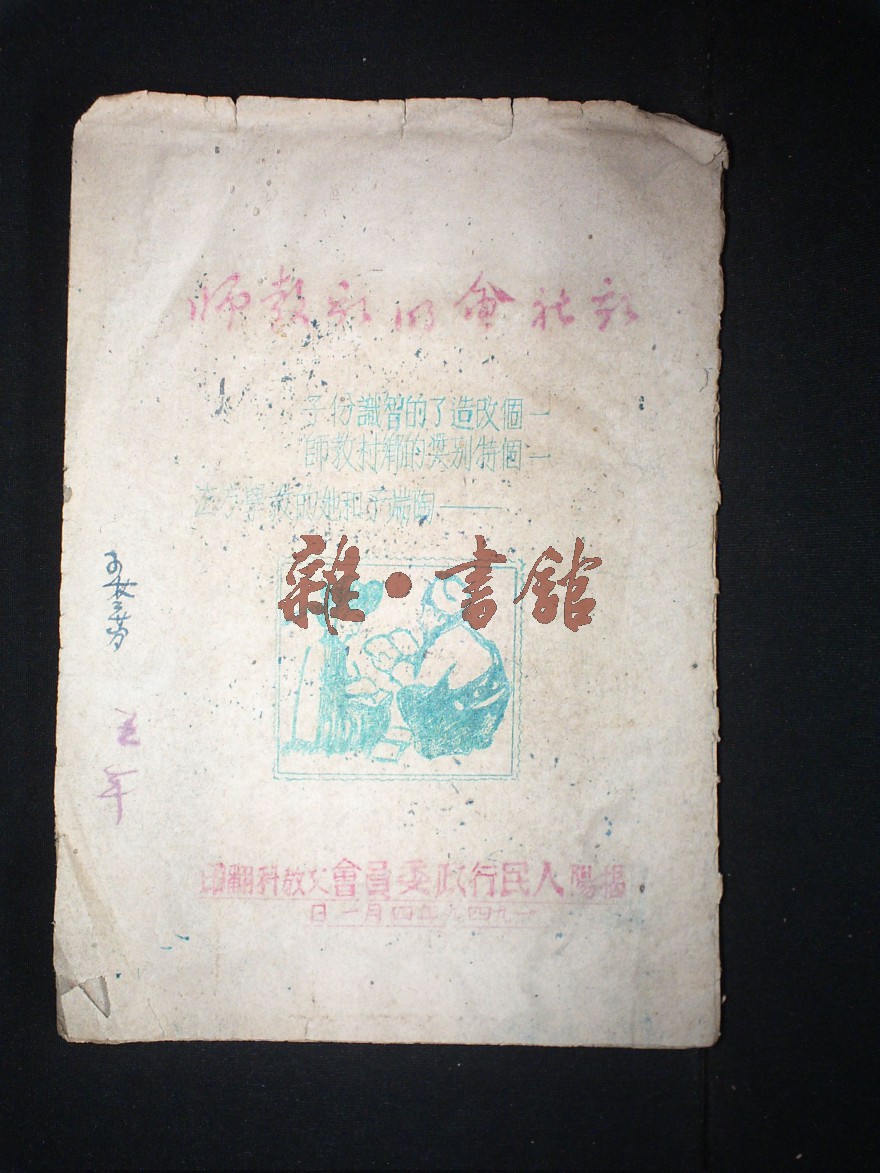 新社會的新教師
一個改造了的智識份子
一個特别奬的鄉村教師
——陶端予和她的教學方法
雜·書館
揭陽人民行政委員會文教科翻印
一九四九年四月一日